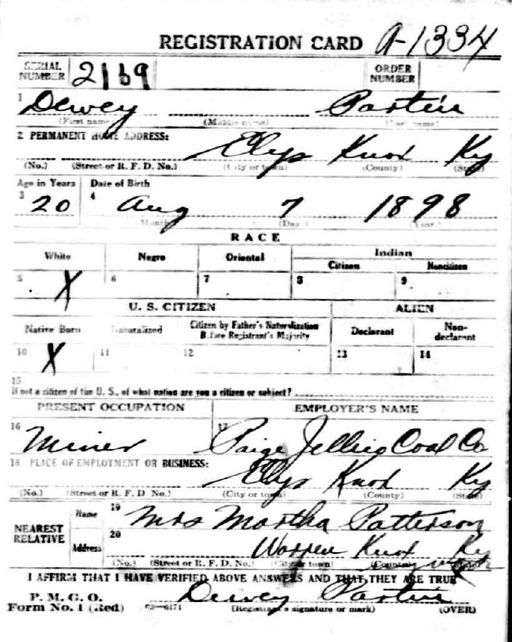 REGISTRATION CARD A-1334
SERIAL NUMBER 2169 ORDER NUMBER
1 Dewey Partin
(First name) (Middle name) (Last name)
2 PERMANENT HOME ADDRESS:
Elys Knox Ky
(No.) (Street or R. F. D. No.) (City or town) (County) (State)
Age in Years Date of Birth
3 20 4 Aug 7 1898
(Month.) (Day.) (Year.)
RACE
White Negro Oriental Indian
Citizen Noncitizen
5 X 6 7 8 9
U. S. CITIZEN ALIEN
Native Born Naturalized Citizen by Father's Naturalization Before Registrant's Majority Declarant Non-declarant
10 X 11 12 13 14
15
If not a citizen of the U. S., of what nation are you a citizen or subject?
PRESENT OCCUPATION EMPLOYER'S NAME
16 Miner 17 Paige Jellico Coal Co
18 PLACE OF EMPLOYMENT OR BUSINESS:
Elys Knox Ky
(No.) (Street or R. F. D. No.) (City or town) (County) (State)
NEAREST RELATIVE Name 19 Mrs Martha Patterson
Address 20 Warren Knox Ky
(No.) (Street or R. F. D. No.) (City or town) (County)
I AFFIRM THAT I HAVE VERIFIED ABOVE ANSWERS AND THAT THEY ARE TRUE
P. M. G. O.
Form No. 1 (Red) 03-6171 Dewey Partin
(Registrant's signature or mark) (OVER)